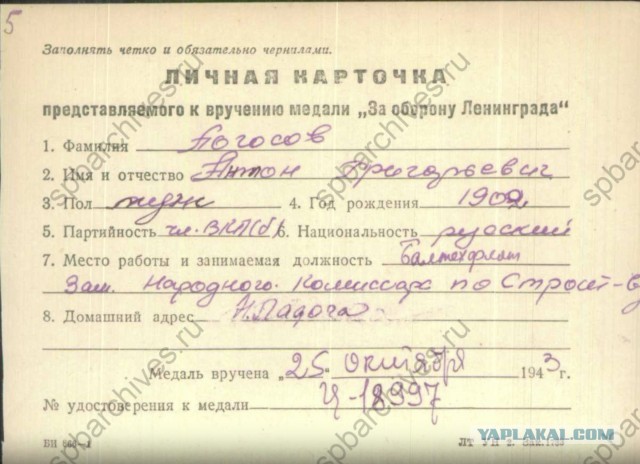 5
Заполнять четко и обязательно чернилами.
ЛИЧНАЯ КАРТОЧКА
представляемого к вручению медали „За оборону Ленинграда“
1. Фамилия Погосов
2. Имя и отчество Антон Григорьевич
3. Пол муж 4. Год рождения 1902
5. Партийность чл. ВКП(б) 6. Национальность русский
7. Место работы и занимаемая должность Балттехфлот
Зам. Народного Комиссара по Строит-ву
8. Домашний адрес Н. Ладога
Медаль вручена „25“ октября 1943 г.
№ удостоверения к медали Ц-18997
БИ 666—1
ЛТ УП
spbarchives.ru
spbarchives.ru
spbarchives.ru
spbarchives.ru
spbarchives.ru
YAPLAKAL.COM